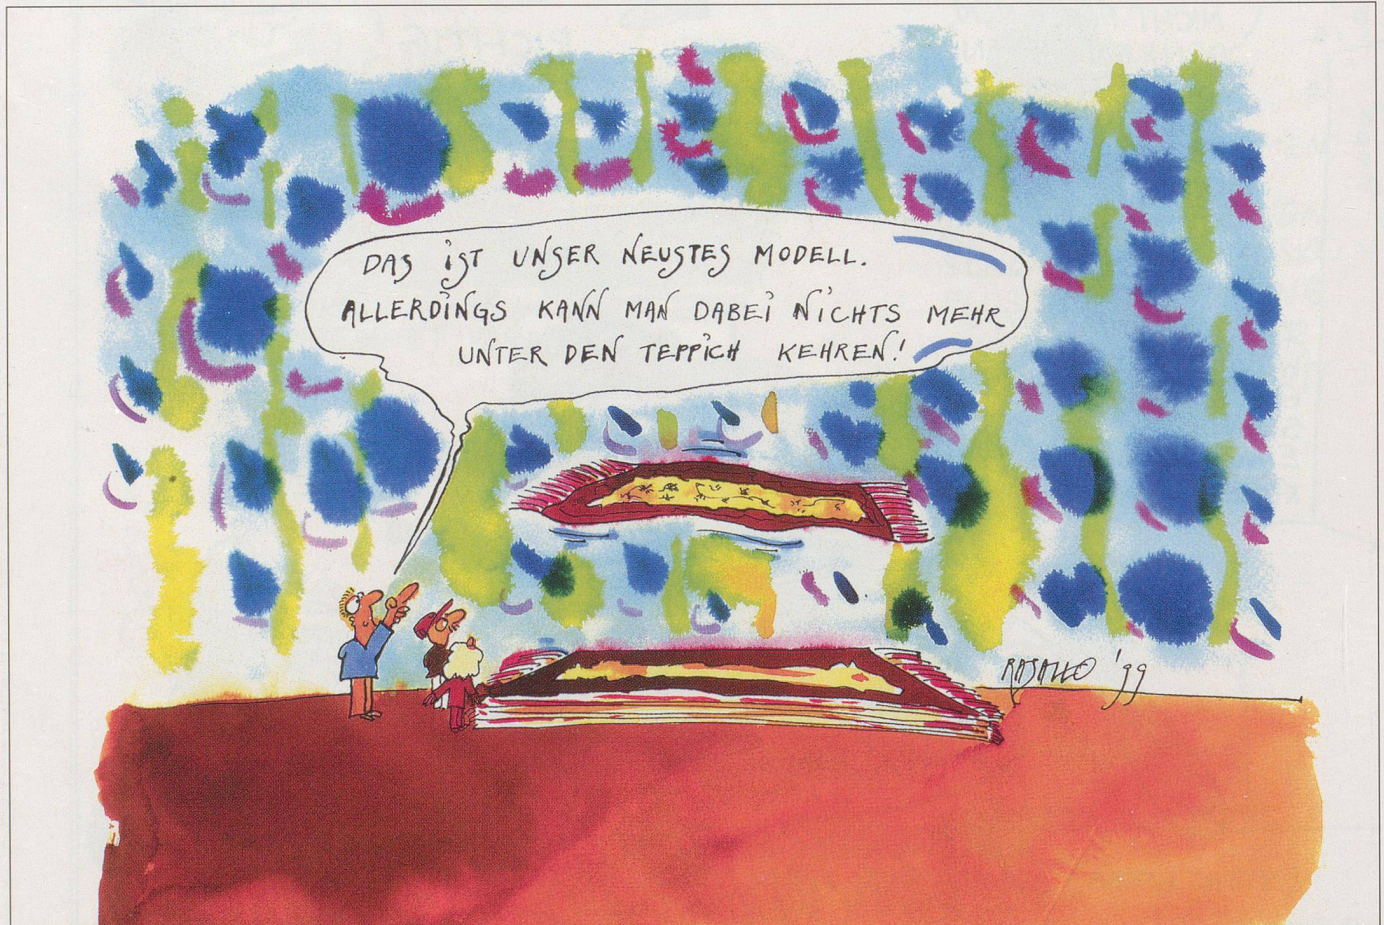 DAS iST UNSER NEUSTES MODELL.
ALLERDiNGS KANN MAN DABEi NiCHTS MEHR
UNTER DEN TEPPiCH KEHREN!
RAPALLO '99